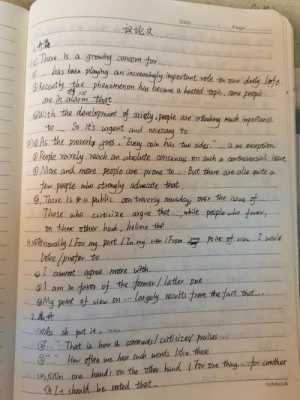 Date. Page.
议论文
1. 开篇
There is a growing concern for ...
... has been playing an increasingly important role in our daily life
③ Recently the phenomenon has become a heated topic, some people
are in alarm that
④ With the development of society, people are attaching much importance
to ... So it's urgent and necessary to
As the proverb goes, "Every coin has two sides." ... is no exception
People rarely reach an absolute consensus on such a controversial issue
More and more people are prone to ... But there are also quite a
few people who strongly advocate that
There is a public controversy nowadays over the issue of
Those who criticize argue that ... while people who favor,
on the other hand, believe that
Personally / For my part / In my / From point of view, I would
like / prefer to
I cannot agree more with
I am in favor of the former / latter one
My point of view on ... largely results from the fact that ...
2.
As put it, ...
That is how comments / criticizes / praises ...
How often we hear such words like these
On one hand: on the other hand / For one thing, ... for another
It should be noted that